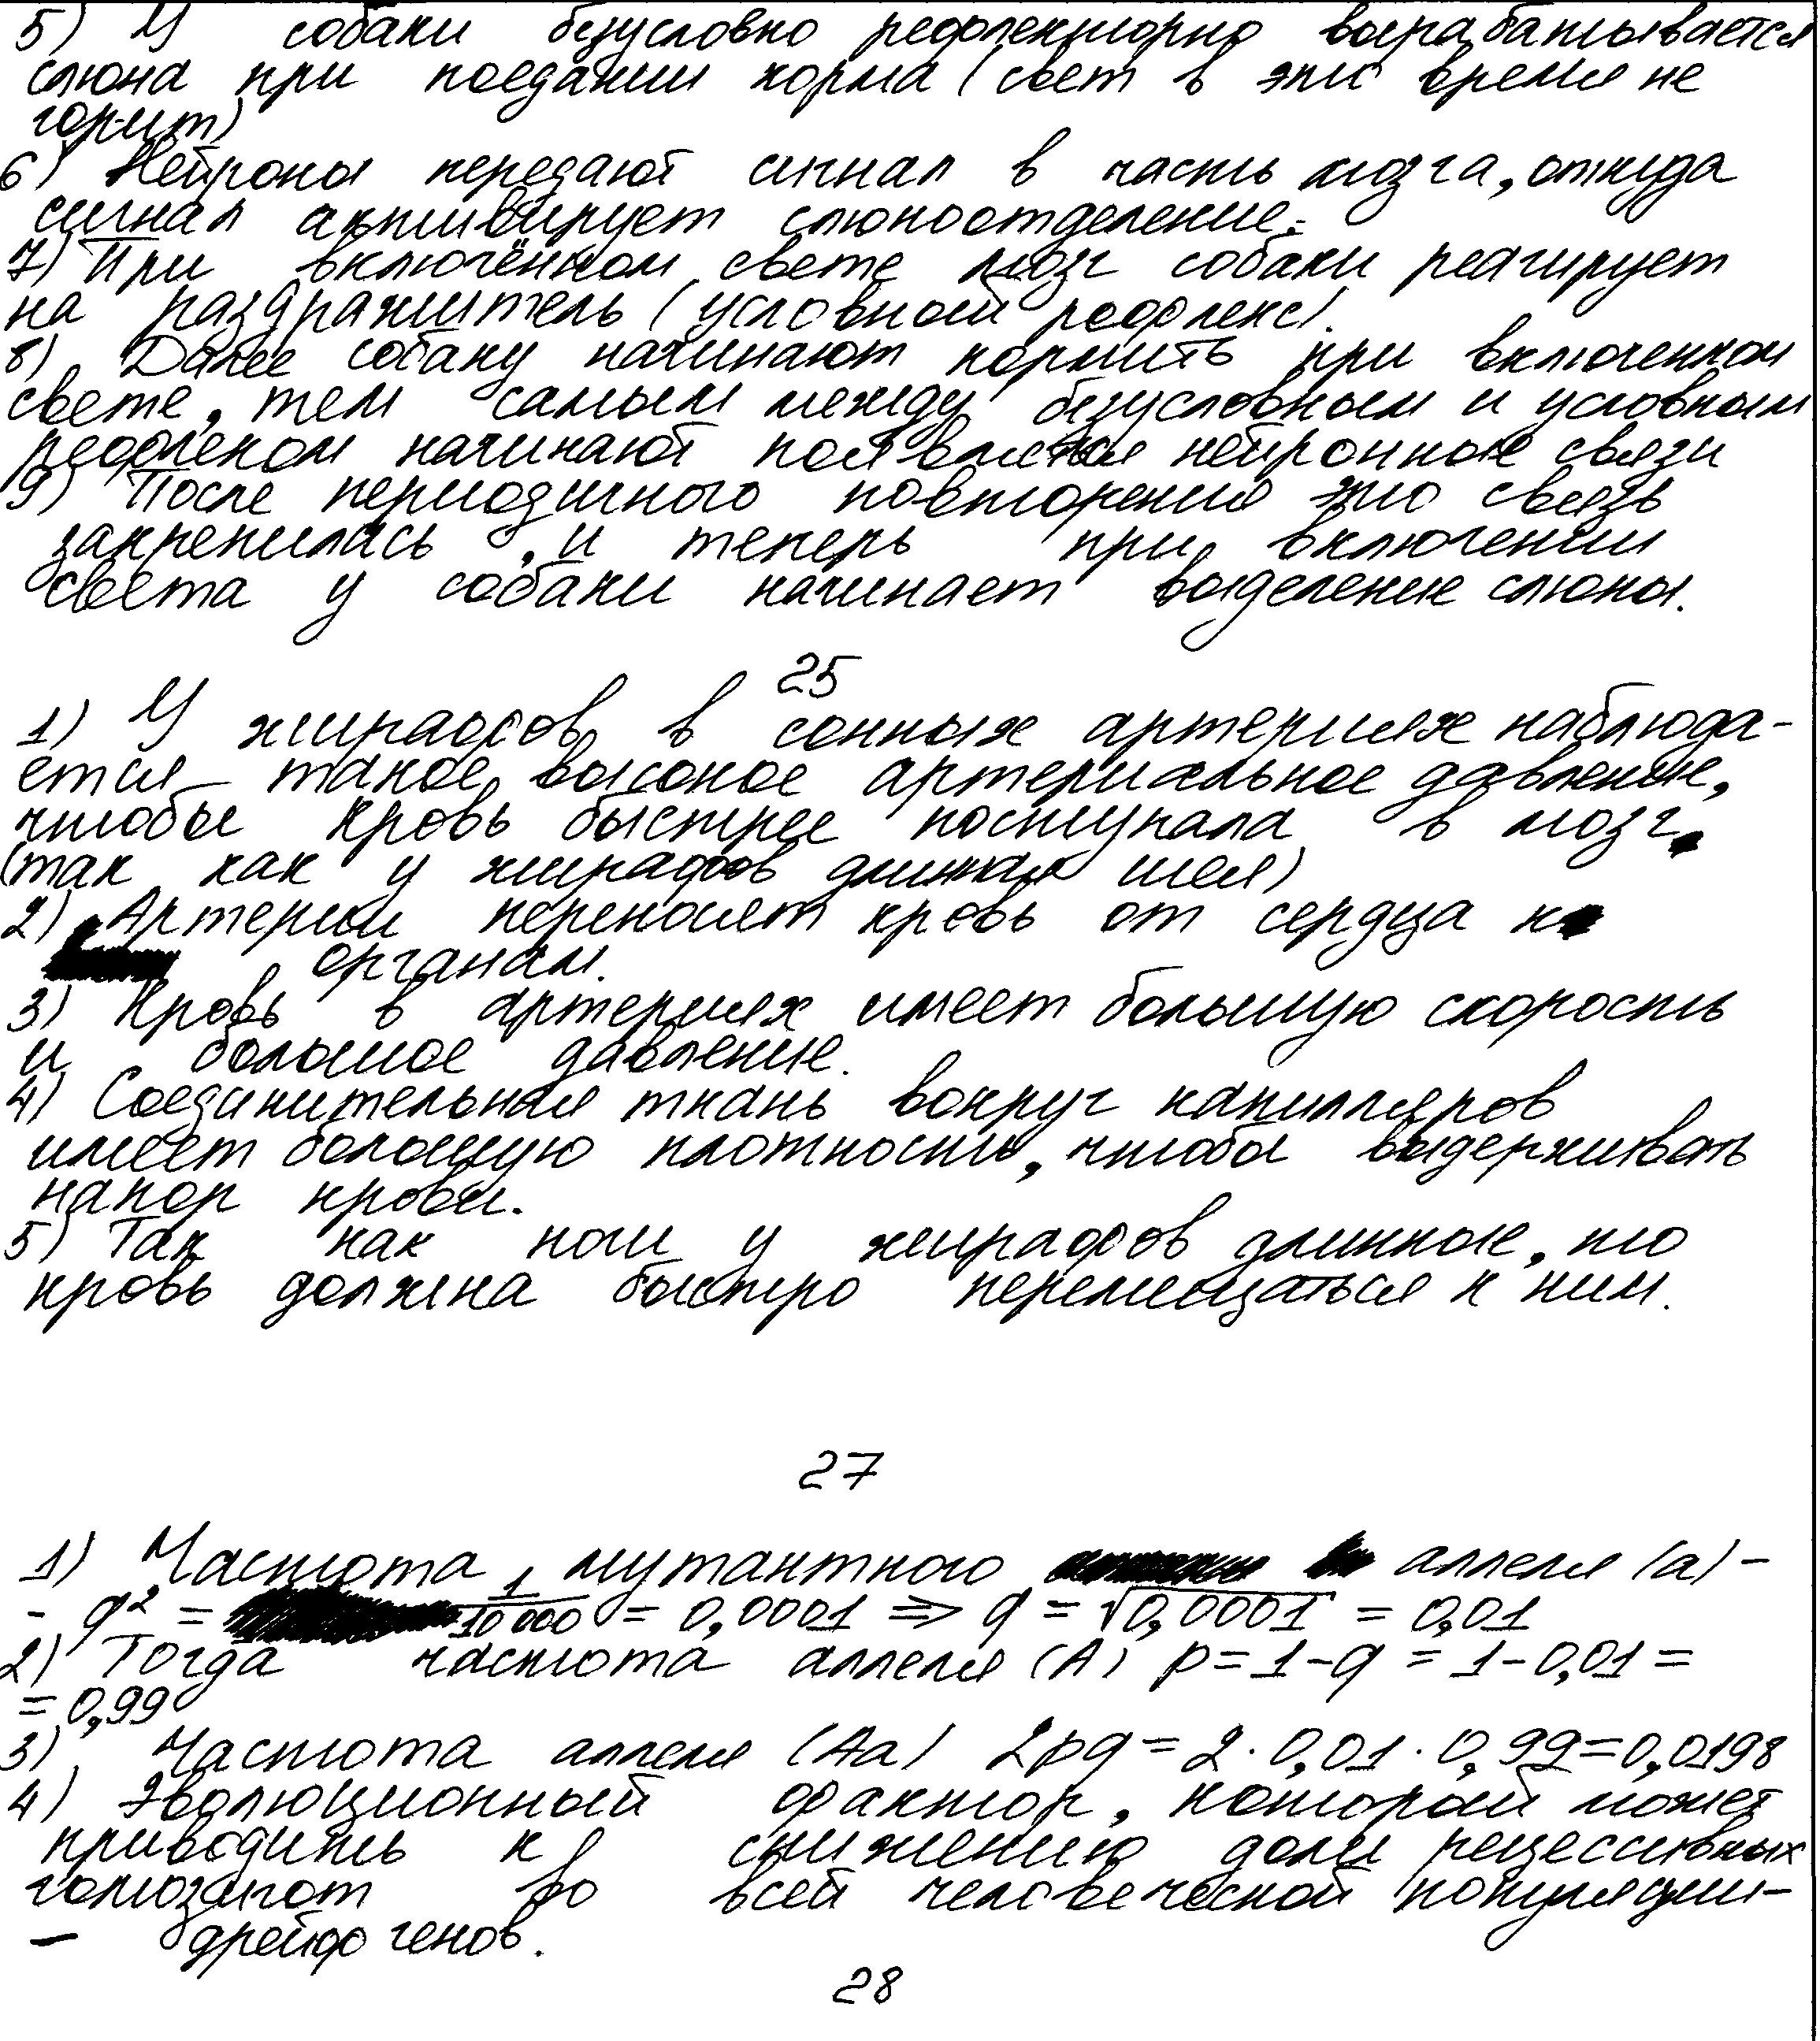 5) У собаки безусловно рефлекторно вырабатывается
слюна при поедании корма (свет в это время не
горит)
6) Нейроны передают сигнал в часть мозга, откуда
сигнал активирует слюноотделение.
7) При включённом свете мозг собаки реагирует
на раздражитель (условный рефлекс).
8) Далее собаку начинают кормить при включенном
свете, тем самым между безусловным и условным
рефлексом начинают появляться нейронные связи
9) После периодичного повторения эта связь
закрепилась, и теперь при включении
света у собаки начинает выделение слюны.
25
1) У жирафов в сонных артериях наблюда-
ется такое высокое артериальное давление,
чтобы кровь быстрее поступала в мозг.
(так как у жирафов длинная шея)
2) Артерии переносят кровь от сердца к
органам.
3) Кровь в артериях имеет большую скорость
и большое давление.
4) Соединительная ткань вокруг капилляров
имеет большую плотность, чтобы выдерживать
напор крови.
5) Так как ноги у жирафов длинные, то
кровь должна быстро перемещаться к ним.
27
1) Частота мутантного аллеля (a) -
- q² = 1/10 000 = 0,0001 => q = √0,0001 = 0,01
2) Тогда частота аллеля (A) p = 1 - q = 1 - 0,01 =
= 0,99
3) Частота аллеля (Aa) 2pq = 2 · 0,01 · 0,99 = 0,0198
4) Эволюционный фактор, который может
приводить к снижению доли рецессивных
гомозигот во всей человеческой популяции -
- дрейф генов.
28